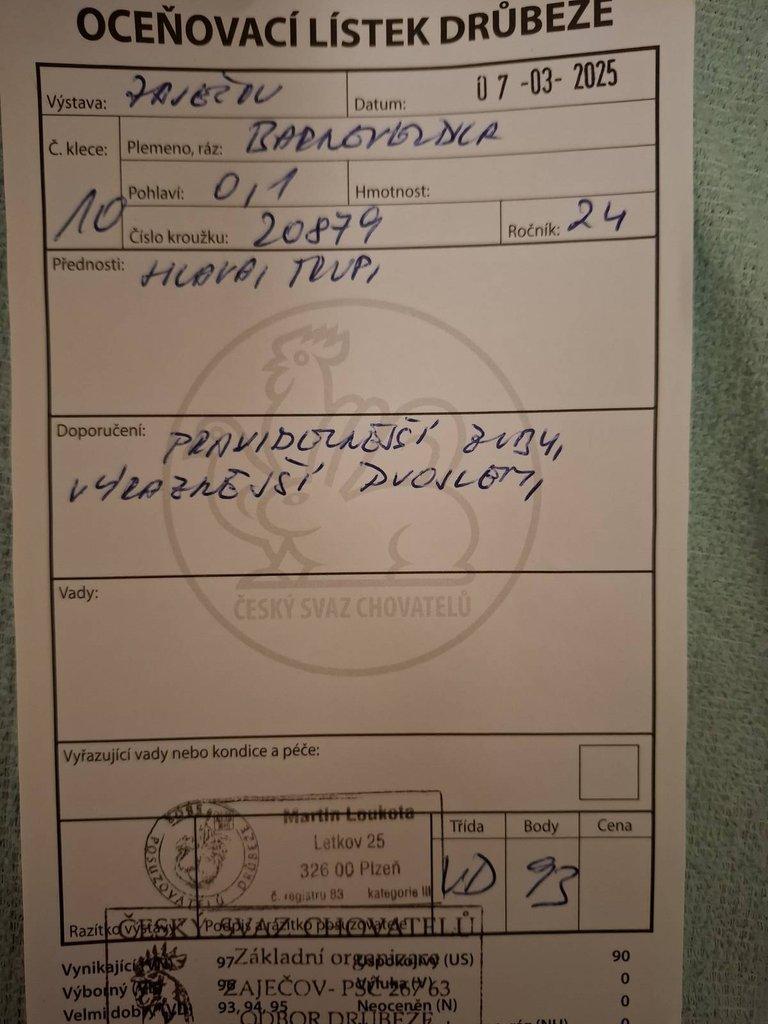 OCEŇOVACÍ LÍSTEK DRŮBEŽE
Výstava: ZAJEČOV Datum: 07-03-2025
Č. klece: 10
Plemeno, ráz: BARNEVELDKA
Pohlaví: 0,1 Hmotnost:
Číslo kroužku: 20879 Ročník: 24
Přednosti: HLAVA, TRUP,
Doporučení: PRAVIDELNĚJŠÍ ZUBY,
VÝRAZNĚJŠÍ DVOJLEM,
ČESKÝ SVAZ CHOVATELŮ
Vady:
Vyřazující vady nebo kondice a péče:
POSUZOVATELŮ DRŮBEŽE
Martin Loukota
Letkov 25
326 00 Plzeň
č. registru 83 kategorie III
Třída Body Cena
VD 93
Razítko výstavy Podpis a razítko posuzovatele
ČESKÝ SVAZ CHOVATELŮ
Základní organizace
ZAJEČOV - PSČ 267 63
ODBOR DRŮBEŽE
Vynikající 97 (US) 90
Výborný 96 Výluka (V) 0
Velmi dobrý (VD) 93, 94, 95 Neoceněn (N) 0